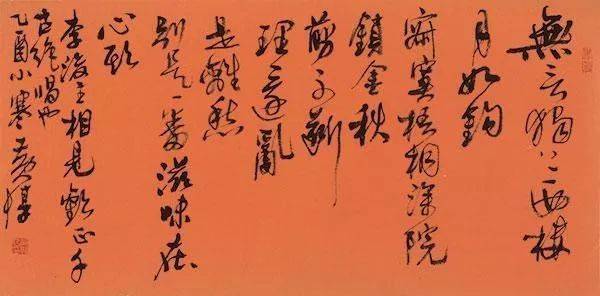 無言獨上西樓
月如鉤
寂寞梧桐深院
鎖金秋
剪不斷
理還亂
是離愁
別是一番滋味在
心頭
李後主相見歡正千
古絕唱也
乙酉小寒黃惇